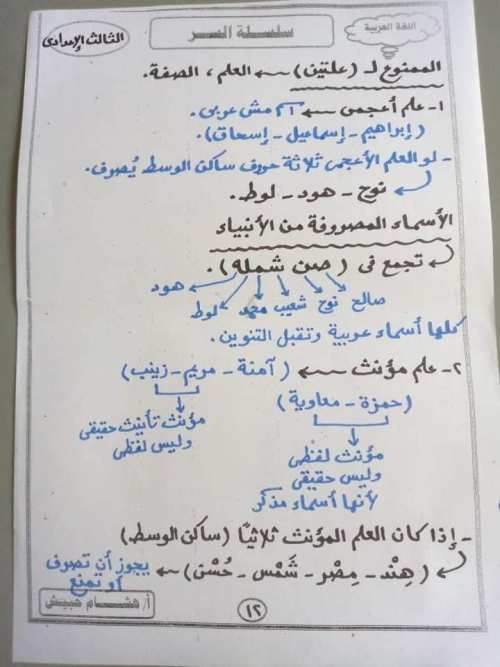 اللغة العربية
سلسلة السر
الثالث الإعدادى
الممنوع لـ (علتين) ← العلم ، الصفة.
١- علم أعجمى ← اسم مش عربى.
(إبراهيم - إسماعيل - إسحاق).
- لو العلم الأعجمى ثلاثة حروف ساكن الوسط يُصرف.
نوح - هود - لوط.
الأسماء المصروفة من الأنبياء
تجمع فى (صن شمله).
هود
صالح نوح شعيب محمد لوط
كلها أسماء عربية وتقبل التنوين.
٢- علم مؤنث ← (آمنة - مريم - زينب)
(حمزة - معاوية)
مؤنث تأنيث حقيقى
وليس لفظى
مؤنث لفظى
وليس حقيقى
لأنها أسماء مذكر
- إذا كان العلم المؤنث ثلاثيًا (ساكن الوسط)
(هِنْد - مِصْر - شَمْس - حُسْن) ← يجوز أن تصرف
أو تمنع
أ/ هشام حبيش
١٢